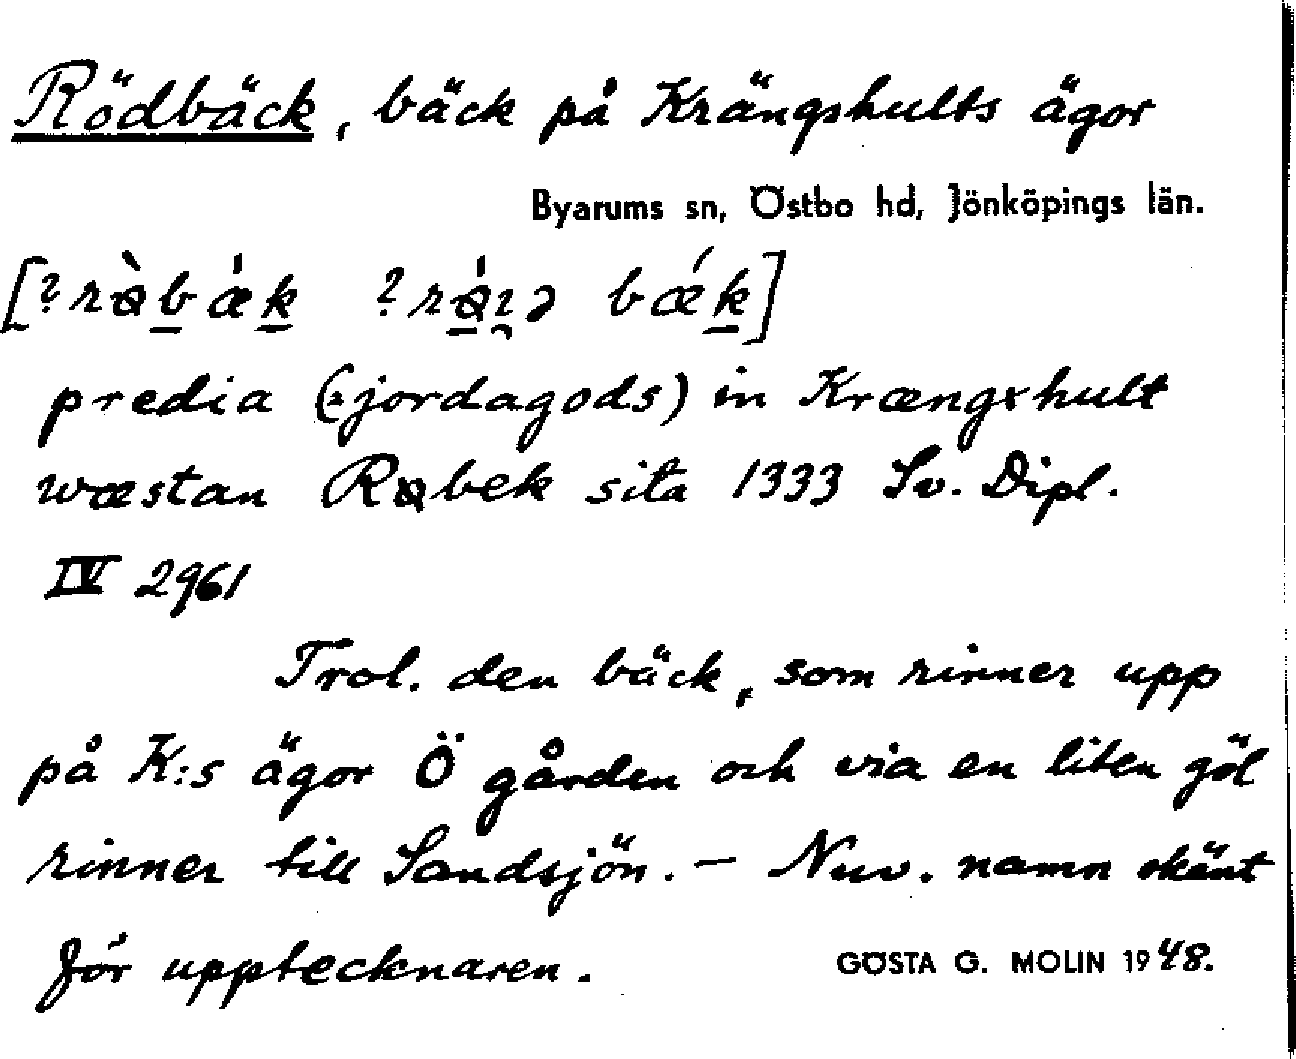 Rödbäck, bäck på Krängshults ägor
Byarums sn, Östbo hd, Jönköpings län.
predia (=jordagods) in Krængxhult
wæstan Røbek sita 1333 Sv. Dipl.
IV 2961
Trol. den bäck, som rinner upp
på K:s ägor Ö gården och via en liten göl
rinner till Sandsjön. – Nuv. namn okänt
för upptecknaren.
GÖSTA G. MOLIN 1948.